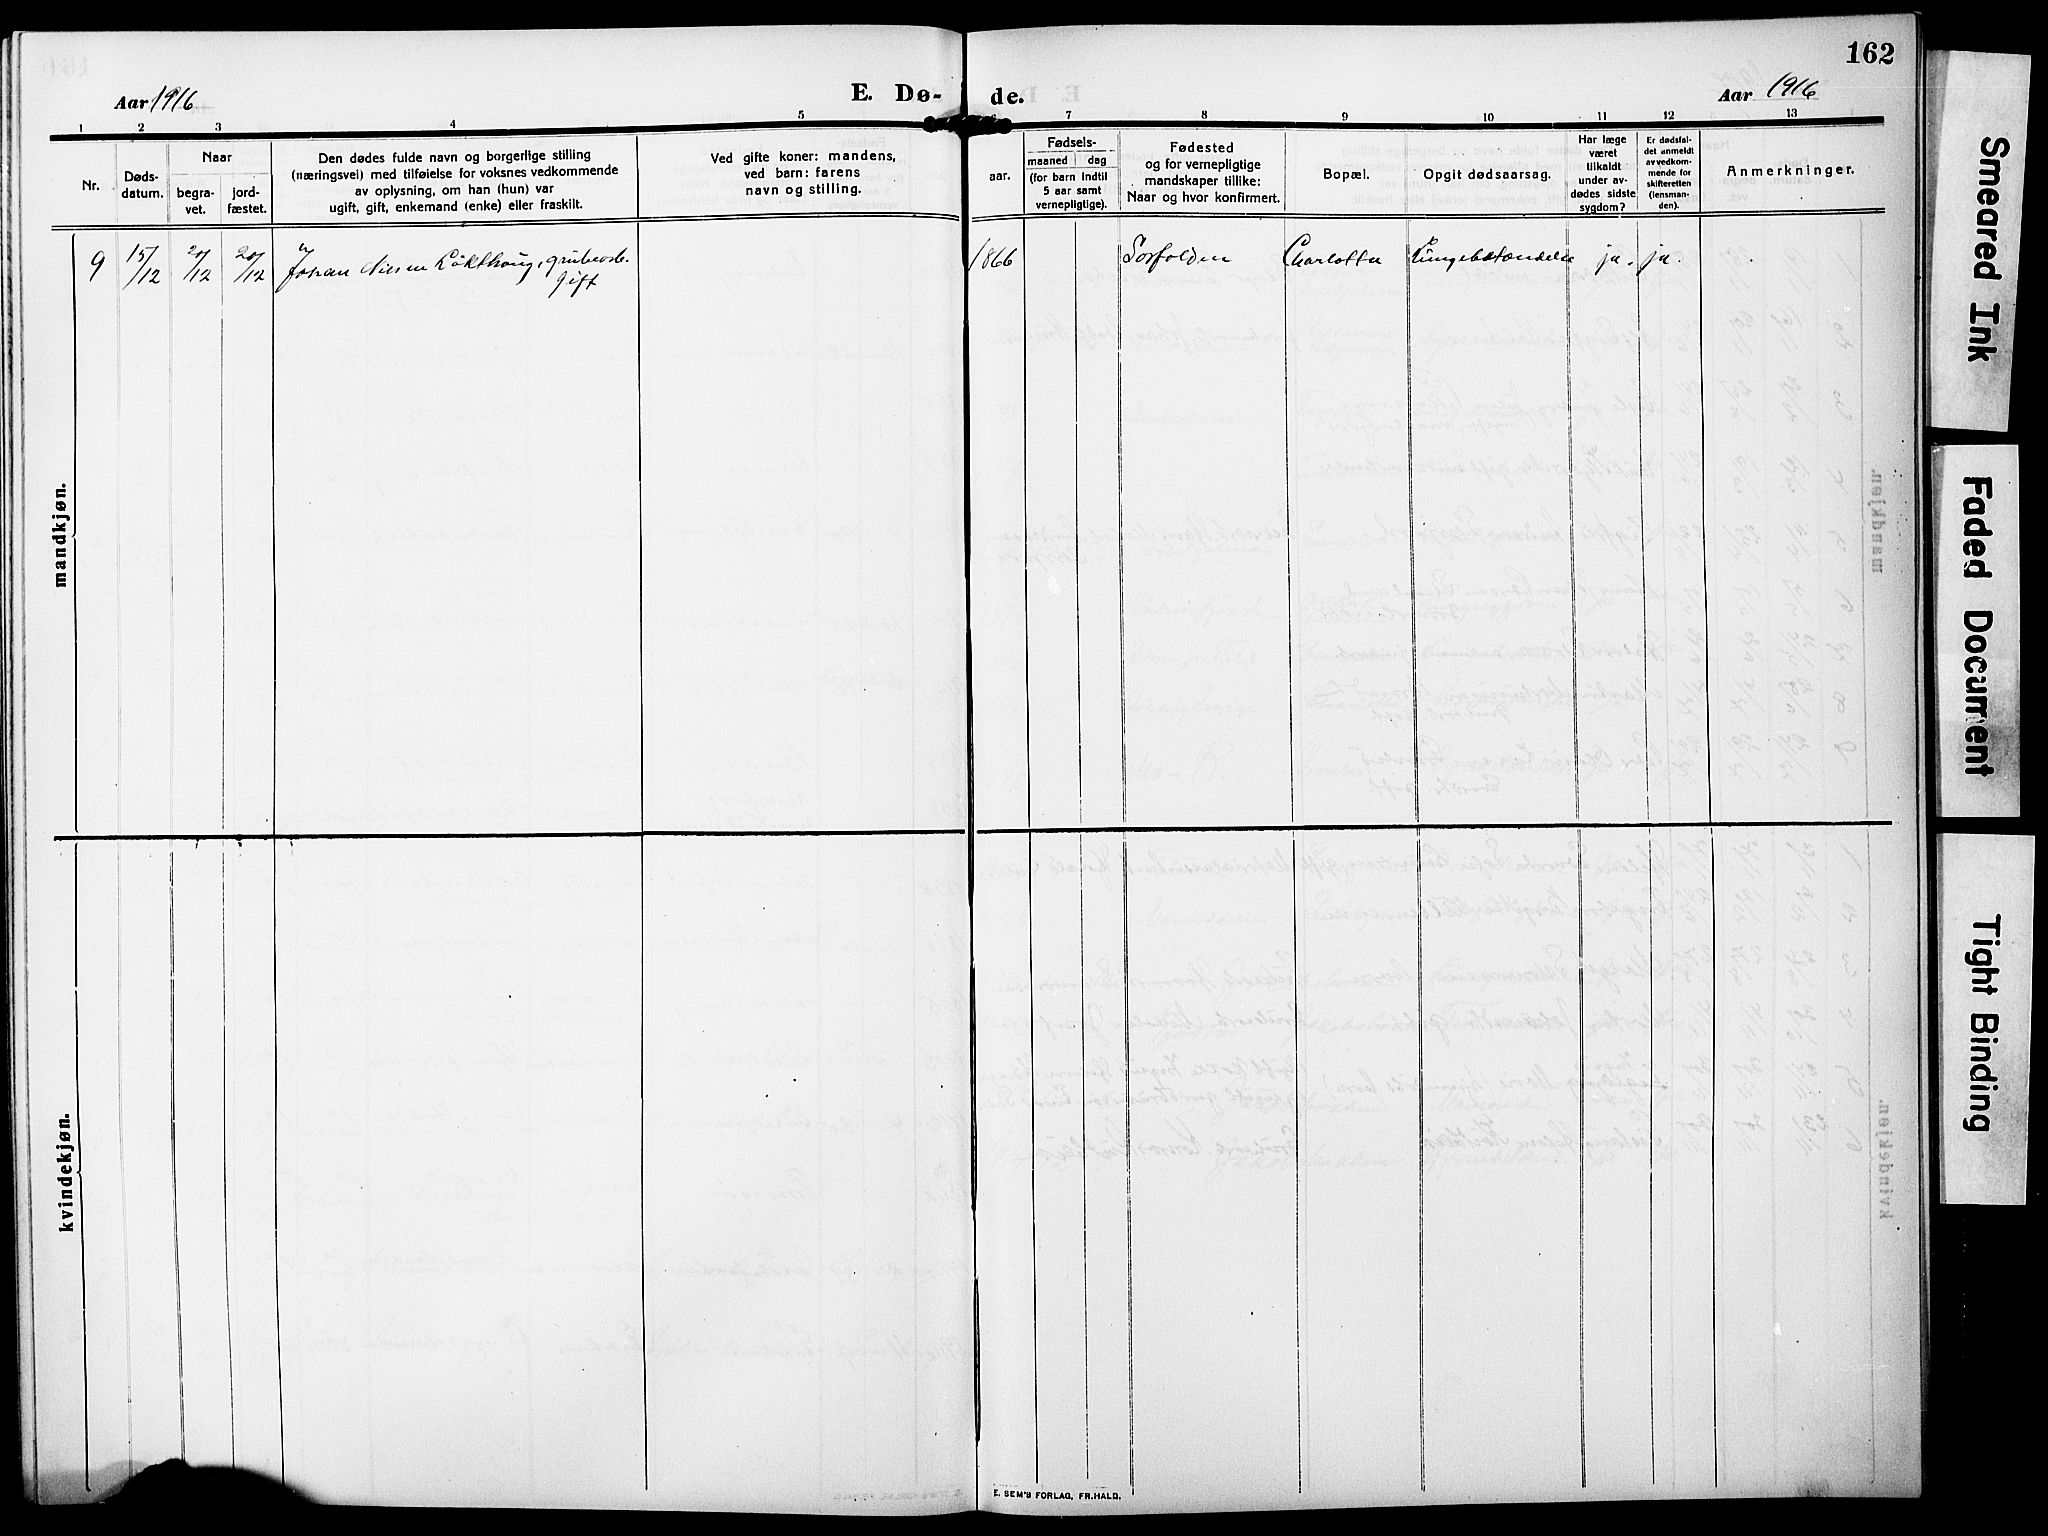 162
Aar 1916
E. Dø-
de.
Aar 1916
1 2 3 4 5 6 7 8 9 10 11 12 13
Nr.
Døds-
datum.
Naar
begra-
vet.
jord-
fæstet.
Den dødes fulde navn og borgerlige stilling
(næringsvei) med tilføielse for voksnes vedkommende
av oplysning, om han (hun) var
ugift, gift, enkemand (enke) eller fraskilt.
Ved gifte koner: mandens,
ved barn: farens
navn og stilling.
aar.
Fødsels-
maaned dag
(for barn indtil
5 aar samt
vernepligtige).
Fødested
og for vernepligtige
mandskaper tillike:
Naar og hvor konfirmert.
Bopæl.
Opgit dødsaarsag.
Har læge
været
tilkaldt
under av-
dødes sidste
sygdom?
Er dødsfal-
det anmeldt
av vedkom-
mende for
skifteretten
(lensman-
den).
Anmerkninger.
9 15/12 20/12 20/12 Johan Nilsen, grubearb. 1866 Sørfolden Charlotta Lungebetændelse ja. ja.
Gift
mandkjøn.
kvindekjøn.
E. SEM'S FORLAG, FR.HALD.
Smeared Ink
Faded Document
Tight Binding